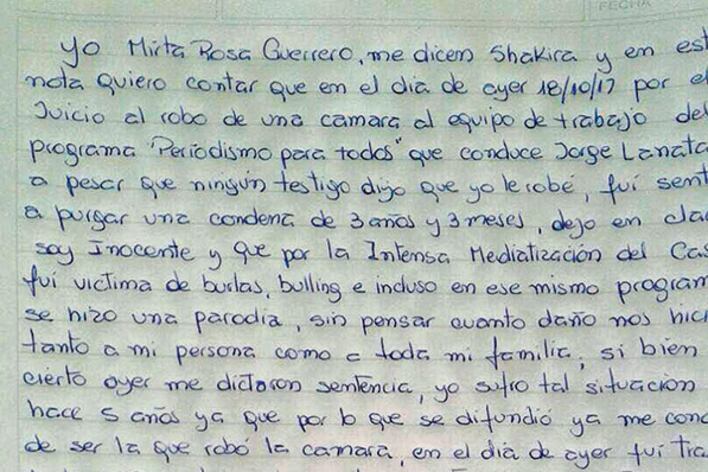 FECHA
yo Mirta Rosa Guerrero, me dicem Shakira y em est
nota quiero contar que em el dia de ayer 18/10/17 por el
Juicio al robo de una camara al equipo de trabajo del
programa "Periodismo para todos" que conduce Jorge Lanata
a pesar que ningún testigo dijo que yo le robé, fuí sent
a purgar una condena de 3 años y 3 meses, dejo en cla
soy Inocente y que por la Intensa Mediatización del Cas
fuí victima de burlas, bulling e incluso en ese mismo program
se hizo una parodia, sin pensar cuanto daño nos hici
tanto a mi persona como a toda mi familia, si bien
cierto ayer me dictaron sentencia, yo sufro tal situación
hace 5 años ya que por lo que se difundió ya me cond
de ser la que robó la camara, em el dia de ayer fuí tra